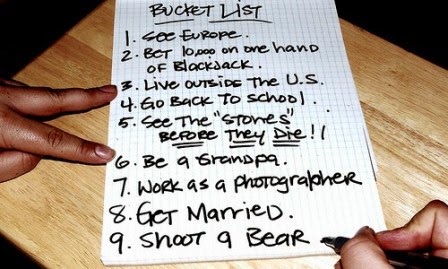 BUCKET LIST
1. SEE EUROPE.
2. BET 10,000 on one hand
OF BlackJack.
3. Live OUTSIDE THE U.S.
4. GO BACK TO SCHOOL.
5. SEE THE "STONES"
BEFORE THEY DIE!!
6. Be a Grandpa.
7. WORK AS a PHOTOGRAPHER
8. GET MARRIED.
9. SHOOT a BEAR